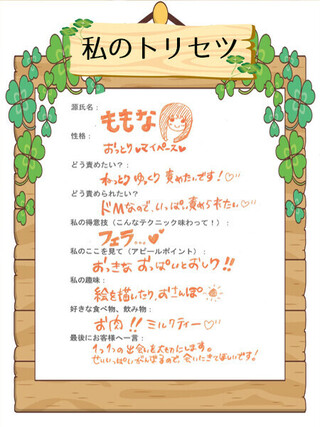 私のトリセツ
源氏名：
ももな
性格：
おっとり♥マイペース♥
どう責めたい？：
ねっとりゆっくり責めたいです！♡
どう責められたい？
ドMなので、いっぱい責められたい♡
私の得意技（こんなテクニック味わって！）：
フェラ...♥
私のここを見て（アピールポイント）：
おっきなおっぱいとおしり!!
私の趣味：
絵を描いたり、おさんぽ
好きな食べ物、飲み物：
お肉!! ミルクティー♡
最後にお客様へ一言：
1つ1つの出会いを大切にします。
せいいっぱいがんばるので、会いにきてほしいです！